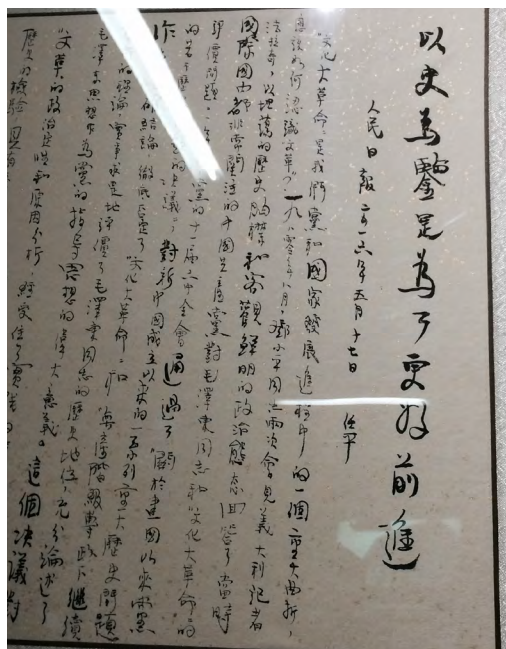 以史為鑒是為了更好前進
人民日報二〇一六年五月十七日 任平
“文化大革命”是我們黨和國家發展進程中的一個重大曲折，
應該如何認識“文革”？一九八零年八月，鄧小平同志兩次會見義大利記者
法拉奇，以坦蕩的歷史胸襟和客觀鮮明的政治態度回答了當時
國際國內都非常關注的中國共產黨對毛澤東同志和“文化大革命”的
評價問題。一 黨的十一屆六中全會通過了“關於建國以來黨
的若干歷 的決議”，對新中國成立以來的一系列重大歷史問題
作 結論，徹底否定了“文化大革命”和“無產階級專政下繼續
的理論，實事求是地評價了毛澤東同志的歷史地位，充分論述了
毛澤東思想作為黨的指導思想的偉大意義。這個決議對
“文革”的政治定性和原因分析 經受住了實踐的
歷史的檢驗